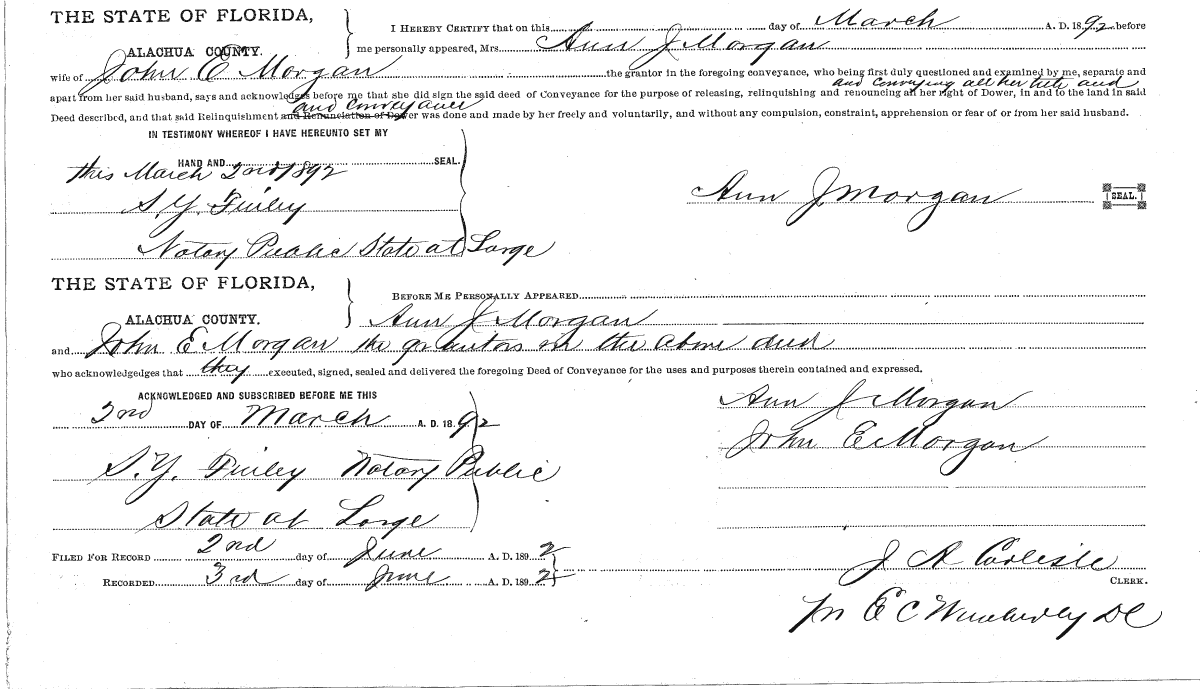 THE STATE OF FLORIDA,
ALACHUA COUNTY.
I HEREBY CERTIFY that on this day of March A. D. 1892 before
me personally appeared, Mrs. Ann J Morgan
wife of John E Morgan the grantor in the foregoing conveyance, who being first duly questioned and examined by me, separate and
and conveying all her title and
apart from her said husband, says and acknowledges before me that she did sign the said deed of Conveyance for the purpose of releasing, relinquishing and renouncing all her right of Dower, in and to the land in said
and conveyance
Deed described, and that said Relinquishment and Renunciation of Dower was done and made by her freely and voluntarily, and without any compulsion, constraint, apprehension or fear of or from her said husband.
IN TESTIMONY WHEREOF I HAVE HEREUNTO SET MY
HAND AND SEAL.
this March 2nd 1892
S. Y. Finley
Notary Public State at Large
Ann J Morgan
SEAL.
THE STATE OF FLORIDA,
ALACHUA COUNTY.
BEFORE ME PERSONALLY APPEARED
Ann J Morgan
and John E Morgan the grantors in the above deed
who acknowledgedges that they executed, signed, sealed and delivered the foregoing Deed of Conveyance for the uses and purposes therein contained and expressed.
ACKNOWLEDGED AND SUBSCRIBED BEFORE ME THIS
2nd DAY OF March A. D. 1892
S. Y. Finley Notary Public
State at Large
Ann J Morgan
John E Morgan
FILED FOR RECORD 2nd day of June A. D. 1892
RECORDED 3rd day of June A. D. 1892
J A Carlisle
CLERK.
E C Wimberly DC